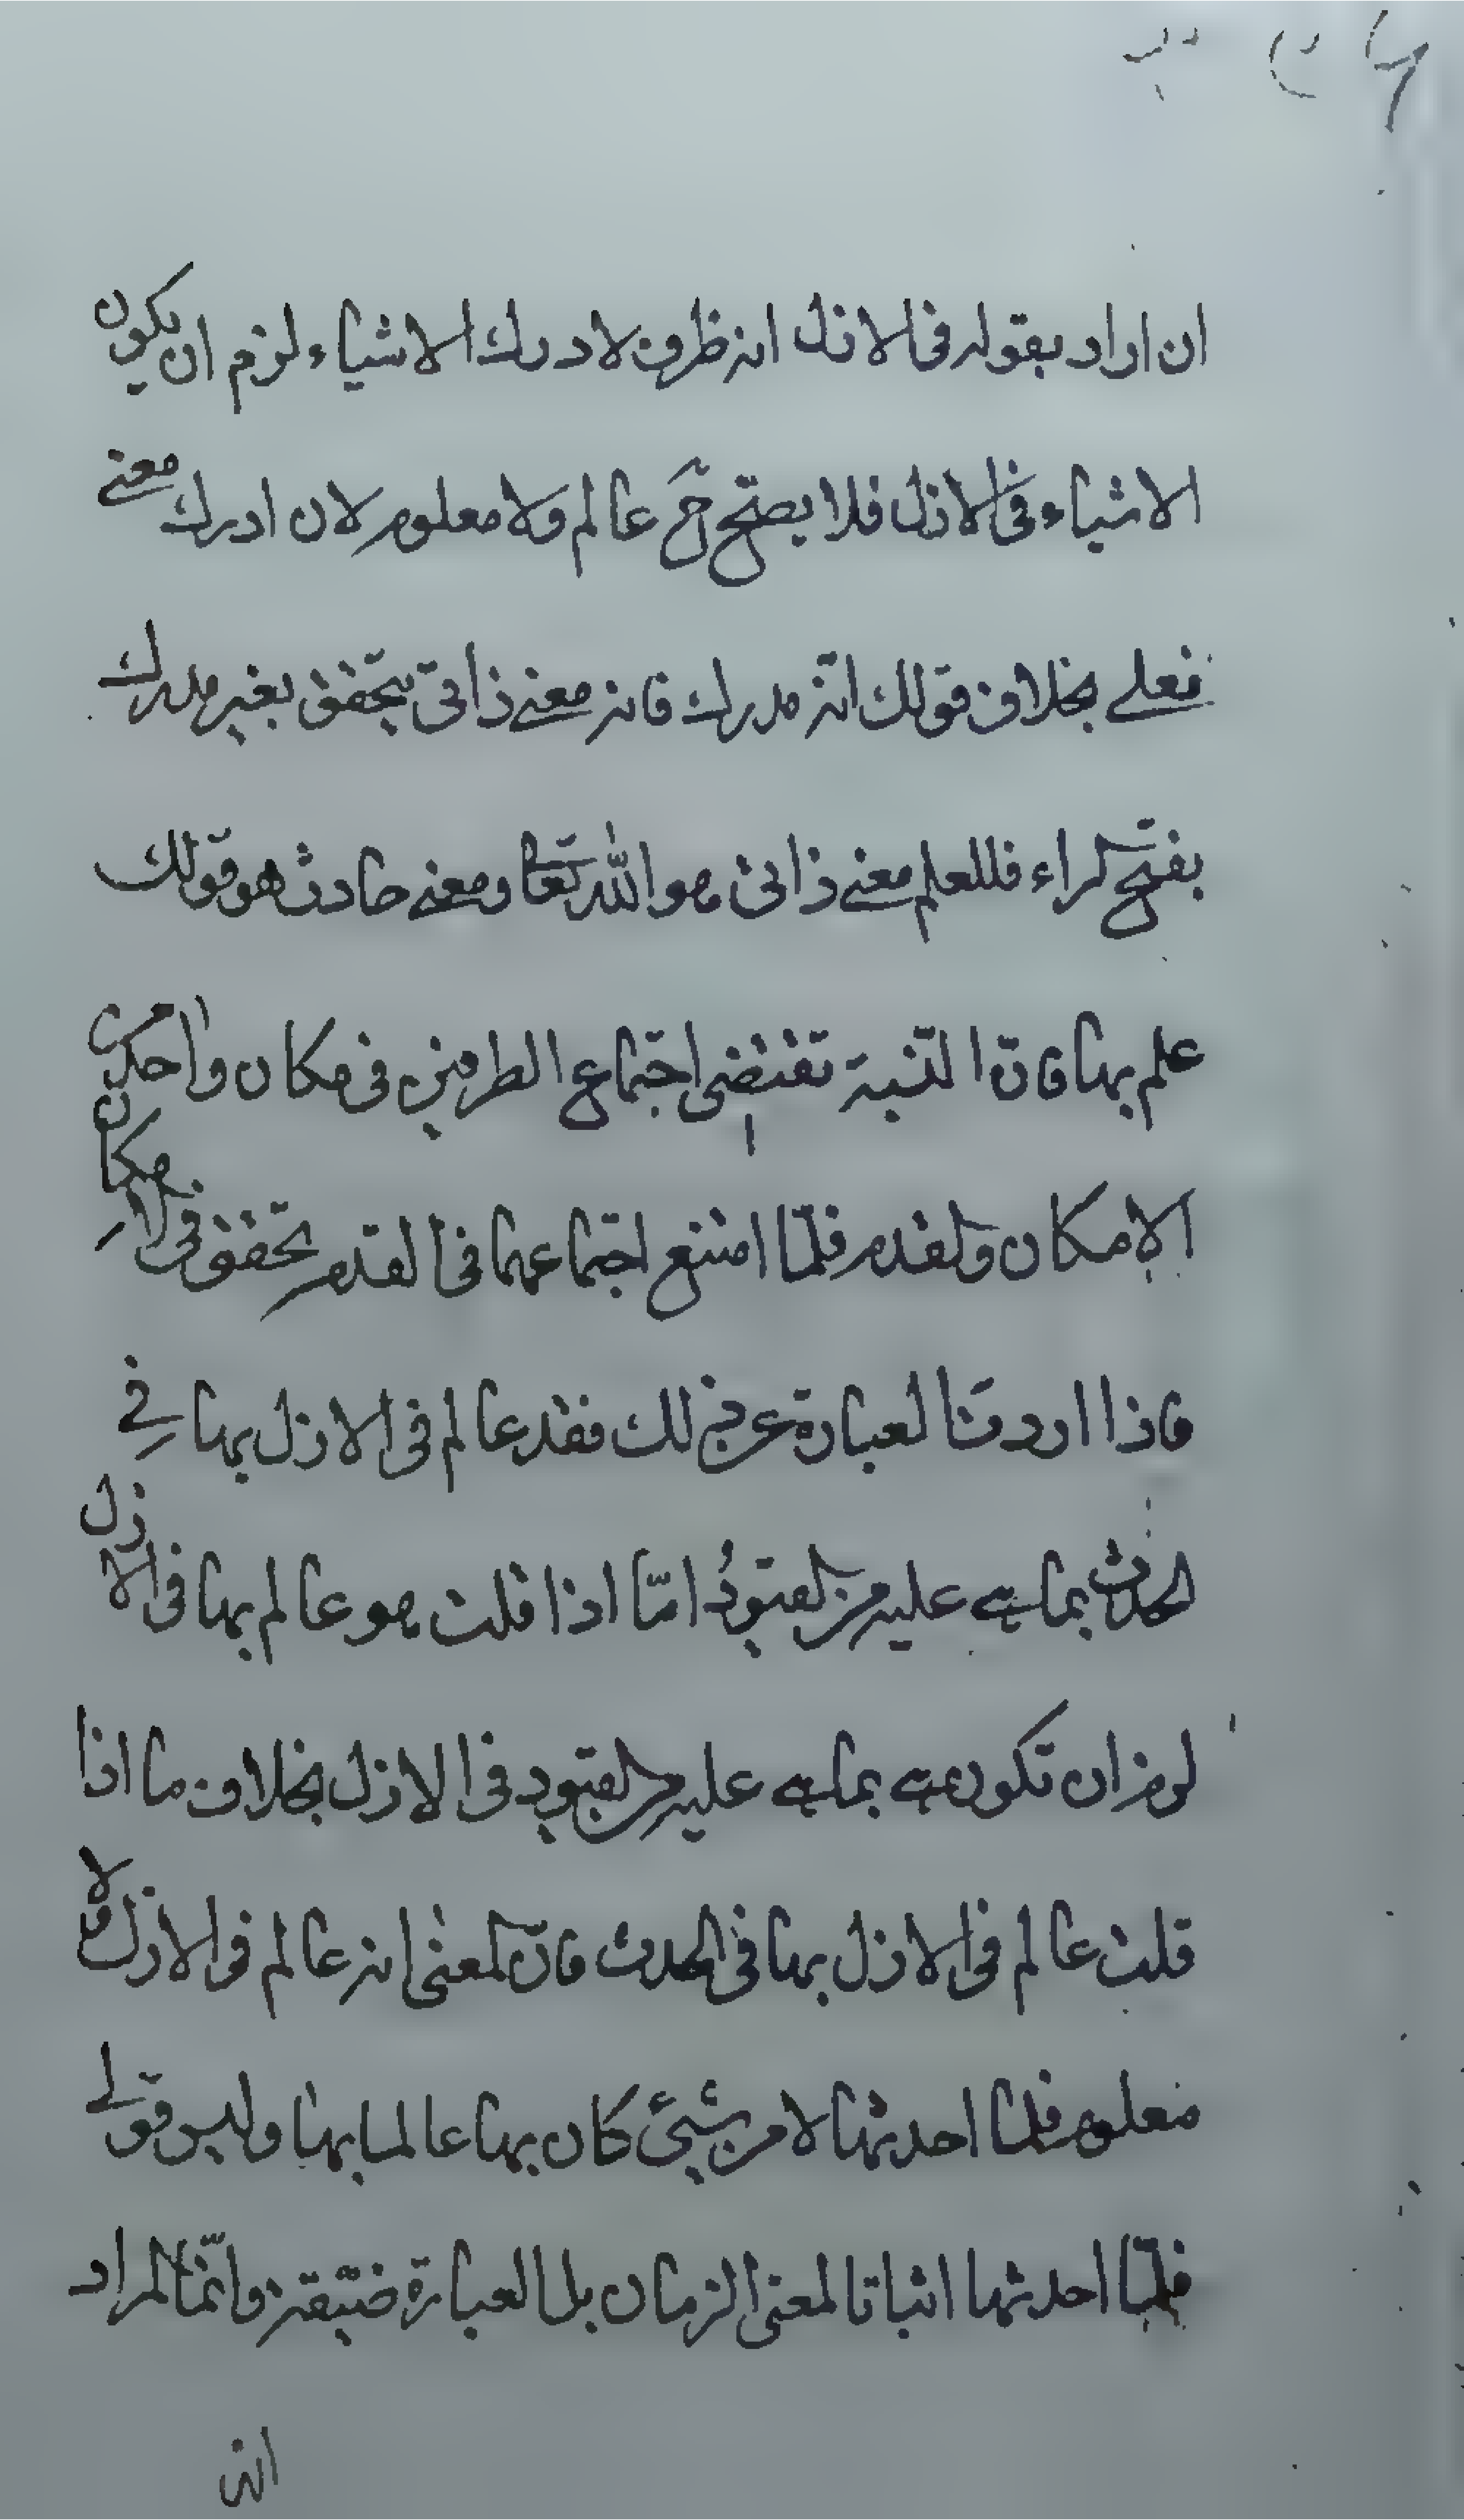 ان اراد بقوله فى الازل انه ظرف لادرك الاشياء لزم ان يكون
الاشياء فى الازل فلا يصح ح عالم ولا معلوم لان ادرك معنے
فعلے بخلاف قولك انّه مدرك فانه معنے ذاتى يتحقق بغير مدرك
بفتح الراء فللعلم معنے ذاتى هو اللّه تعا ومعنے حادث هو قولك
علم بها فان النّسبة تقتضى اجتماع الطرفين فى مكان واحد من
الامكان والقدم فلمّا امتنع اجتماعهما فى القدم تحقق فى الامكان
فاذا اردت العبارة عن ذلك فقد عالم فى الازل بها فے
الحدث بما هے عليه من القيود امّا اذا قلت هو عالم بها فى الازل
لزم ان تكون هے بما هے عليه من القيود فى الازل بخلاف ما اذا
قلت عالم فى الازل بها فى الحدث فان المعنى انه عالم فى الازل ولا
معلوم فلما احدثها لا من شئ كان بها عالما بها وليس قولے
فلمّا احدثها اثباتا لمعنى الزمان بل العبارة ضيّقة وانّما المراد
انه